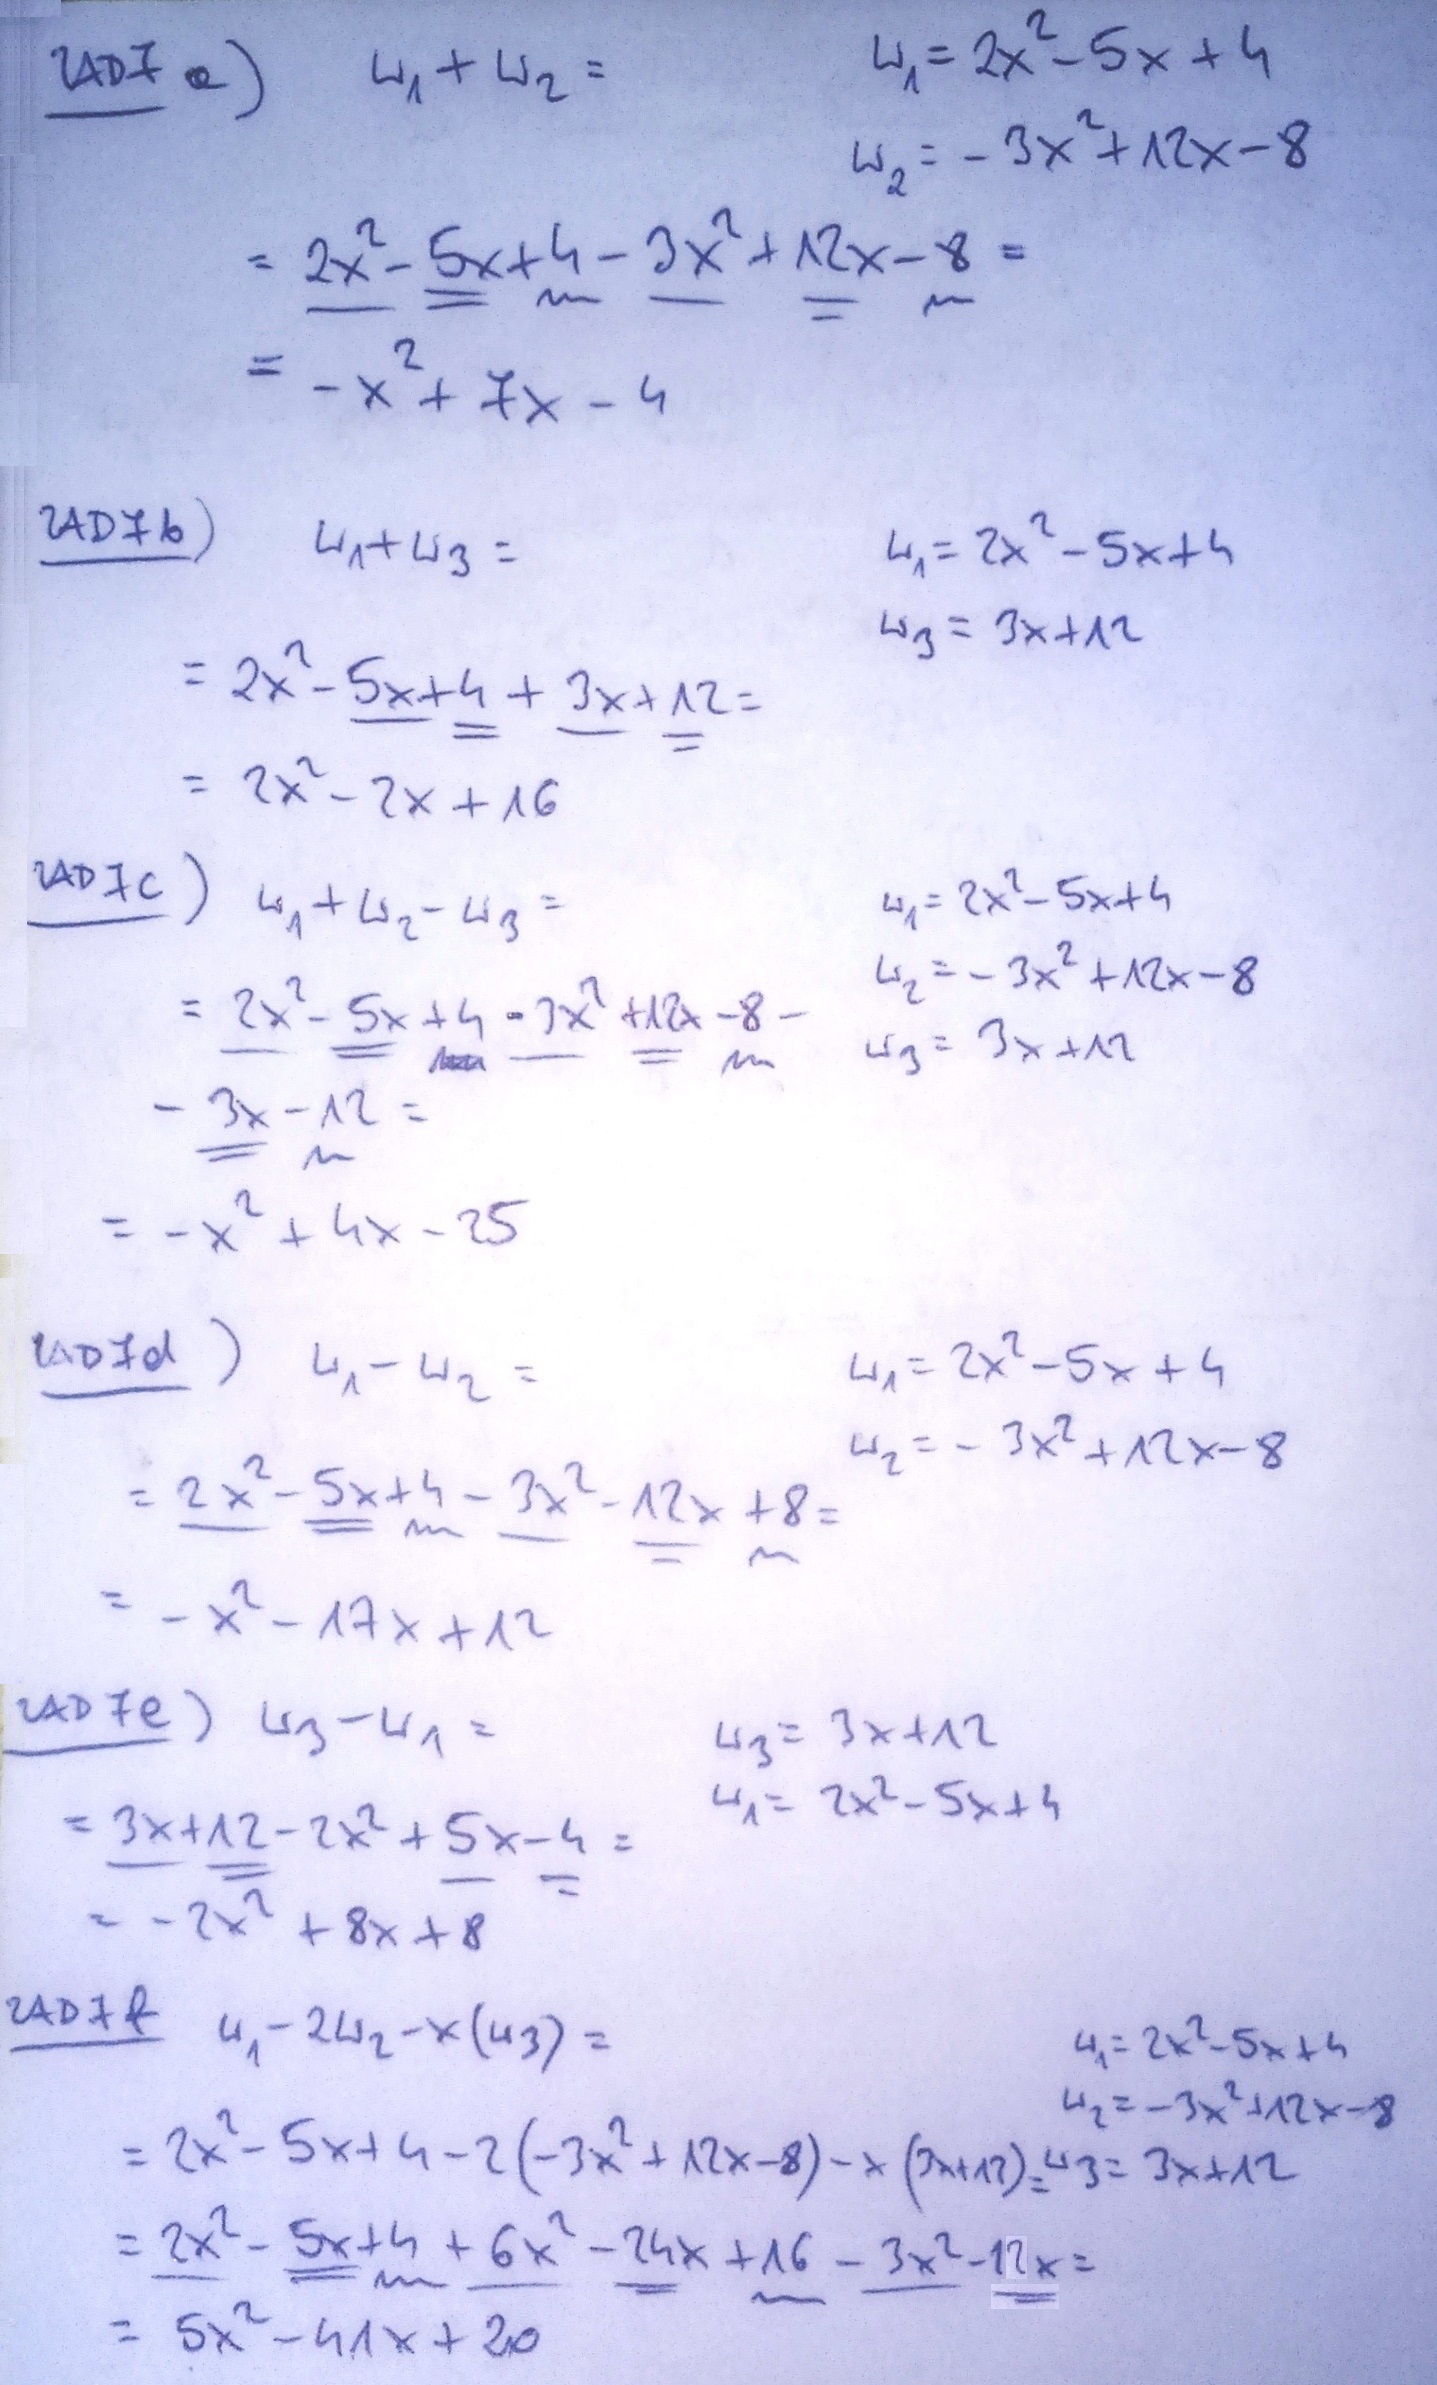 ZAD7 a) W₁+W₂= W₁=2x²-5x+4
W₂=-3x²+12x-8
=2x²-5x+4-3x²+12x-8=
=-x²+7x-4
ZAD7b) W₁+W₃= W₁=2x²-5x+4
W₃=3x+12
=2x²-5x+4+3x+12=
=2x²-2x+16
ZAD7c) W₁+W₂-W₃= W₁=2x²-5x+4
W₂=-3x²+12x-8
=2x²-5x+4-3x²+12x-8- W₃=3x+12
-3x-12=
=-x²+4x-25
ZAD7d) W₁-W₂= W₁=2x²-5x+4
W₂=-3x²+12x-8
=2x²-5x+4-3x²-12x+8=
=-x²-17x+12
ZAD7e) W₃-W₁= W₃=3x+12
W₁=2x²-5x+4
=3x+12-2x²+5x-4=
=-2x²+8x+8
ZAD7f W₁-2W₂-x(W₃)= W₁=2x²-5x+4
W₂=-3x²+12x-8
=2x²-5x+4-2(-3x²+12x-8)-x(3x+12)= W₃=3x+12
=2x²-5x+4+6x²-24x+16-3x²-12x=
=5x²-41x+20